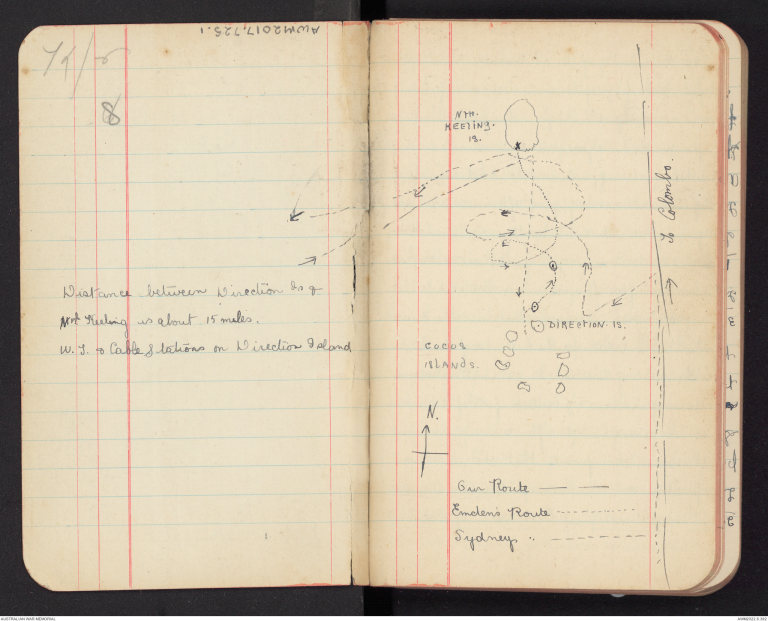 AWM2017.725.1
8
Distance between Direction Is &
Nth Keeling is about 15 miles.
W. T. & Cable Stations on Direction Island
Nth.
KEELING.
IS.
To Colombo.
DIRECTION. IS.
COCOS
ISLANDS.
N.
Our Route
Emden's Route
Sydney "
AUSTRALIAN WAR MEMORIAL